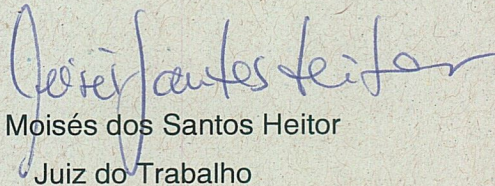 Moisés Santos Heitor
Moisés dos Santos Heitor
Juiz do Trabalho